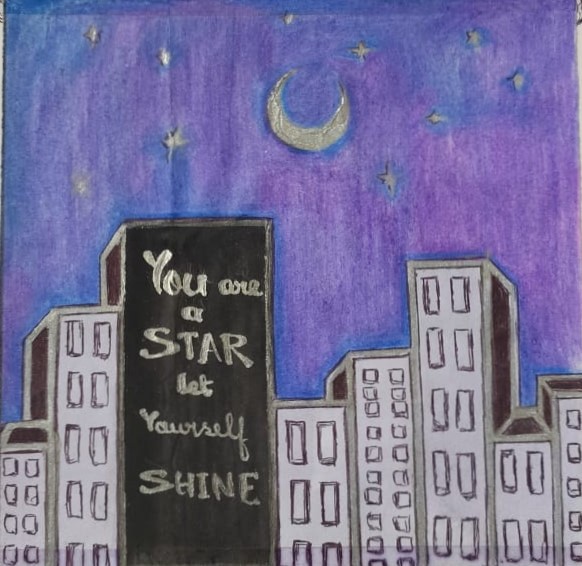 You are
a
STAR
let
Yourself
SHINE